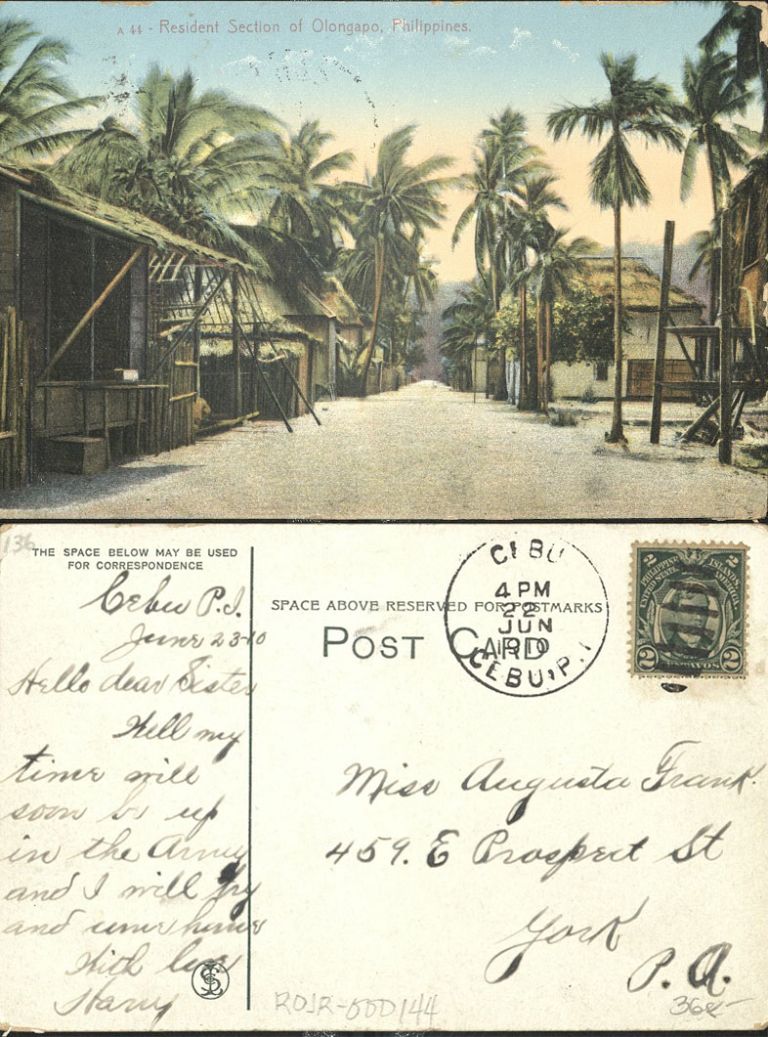 A 44 - Resident Section of Olongapo, Philippines.
136
THE SPACE BELOW MAY BE USED
FOR CORRESPONDENCE
Cebu P.I.
June 23-10
Hello dear Sister
Well my
time will
soon be up
in the Army
and I will try
and come home
With love
Harry
SPACE ABOVE RESERVED FOR POSTMARKS
POST CARD
CEBU
4 PM
22
JUN
1910
CEBU, P.I
2 2
PHILIPPINE ISLANDS
UNITED STATES OF AMERICA
2 CENTAVOS 2
Miss Augusta Frank.
459. E Prospect St
York
P.A.
ROJR-00D144